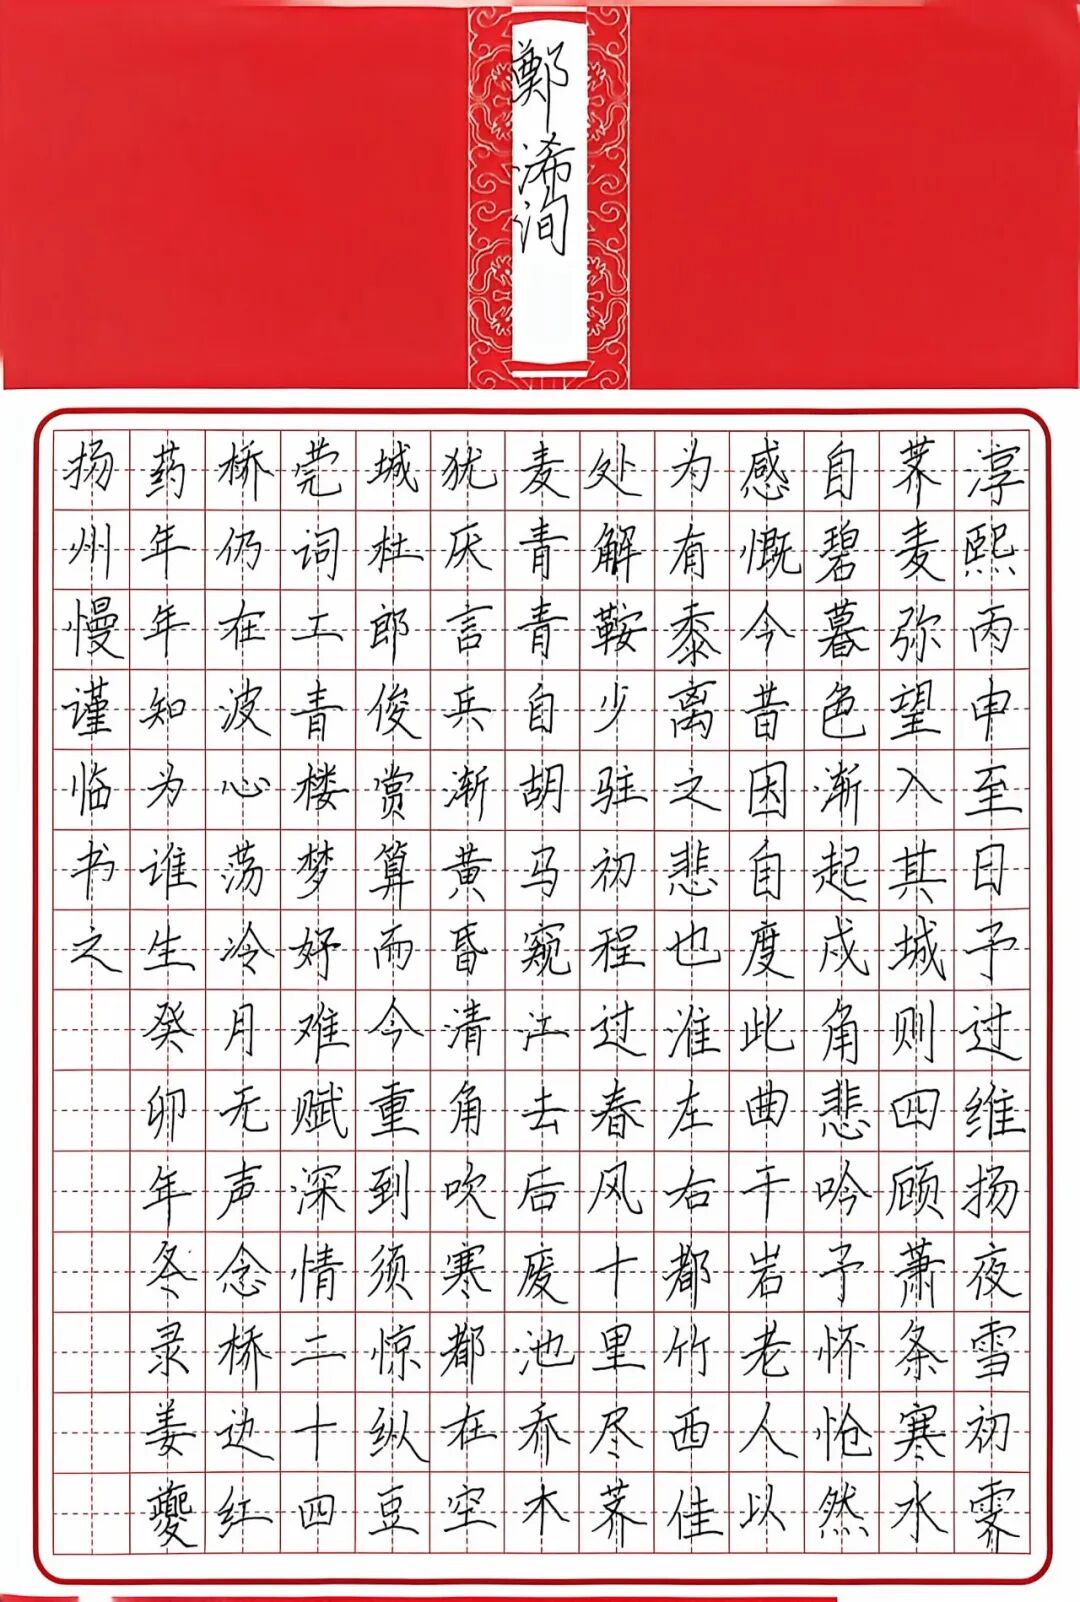 鄭浠洵
淳熙丙申至日予过维扬夜雪初霁
荠麦弥望入其城则四顾萧条寒水
自碧暮色渐起戍角悲吟予怀怆然
感慨今昔因自度此曲千岩老人以
为有黍离之悲也淮左右都竹西佳
处解鞍少驻初程过春风十里尽荠
麦青青自胡马窥江去后废池乔木
犹厌言兵渐黄昏清角吹寒都在空
城杜郎俊赏算而今重到须惊纵豆
莞词工青楼梦好难赋深情二十四
桥仍在波心荡冷月无声念桥边红
药年年知为谁生癸卯年冬录姜夔
扬州慢谨临书之